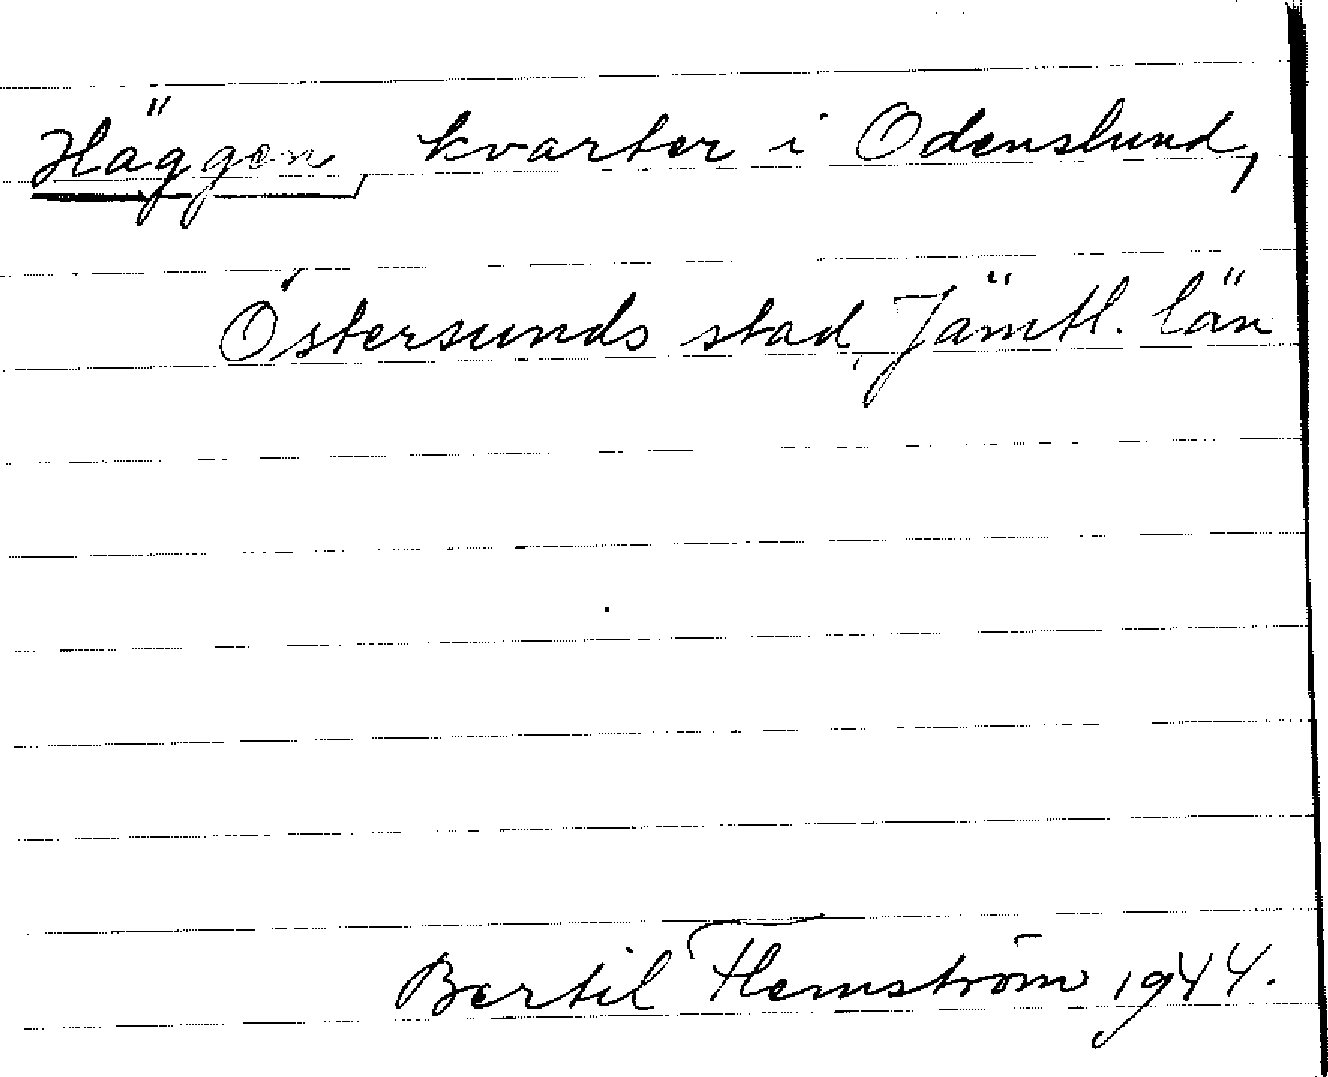 Häggen, kvarter i Odenslund,
Östersunds stad, Jämtl. län
Bertil Flemström 1944.